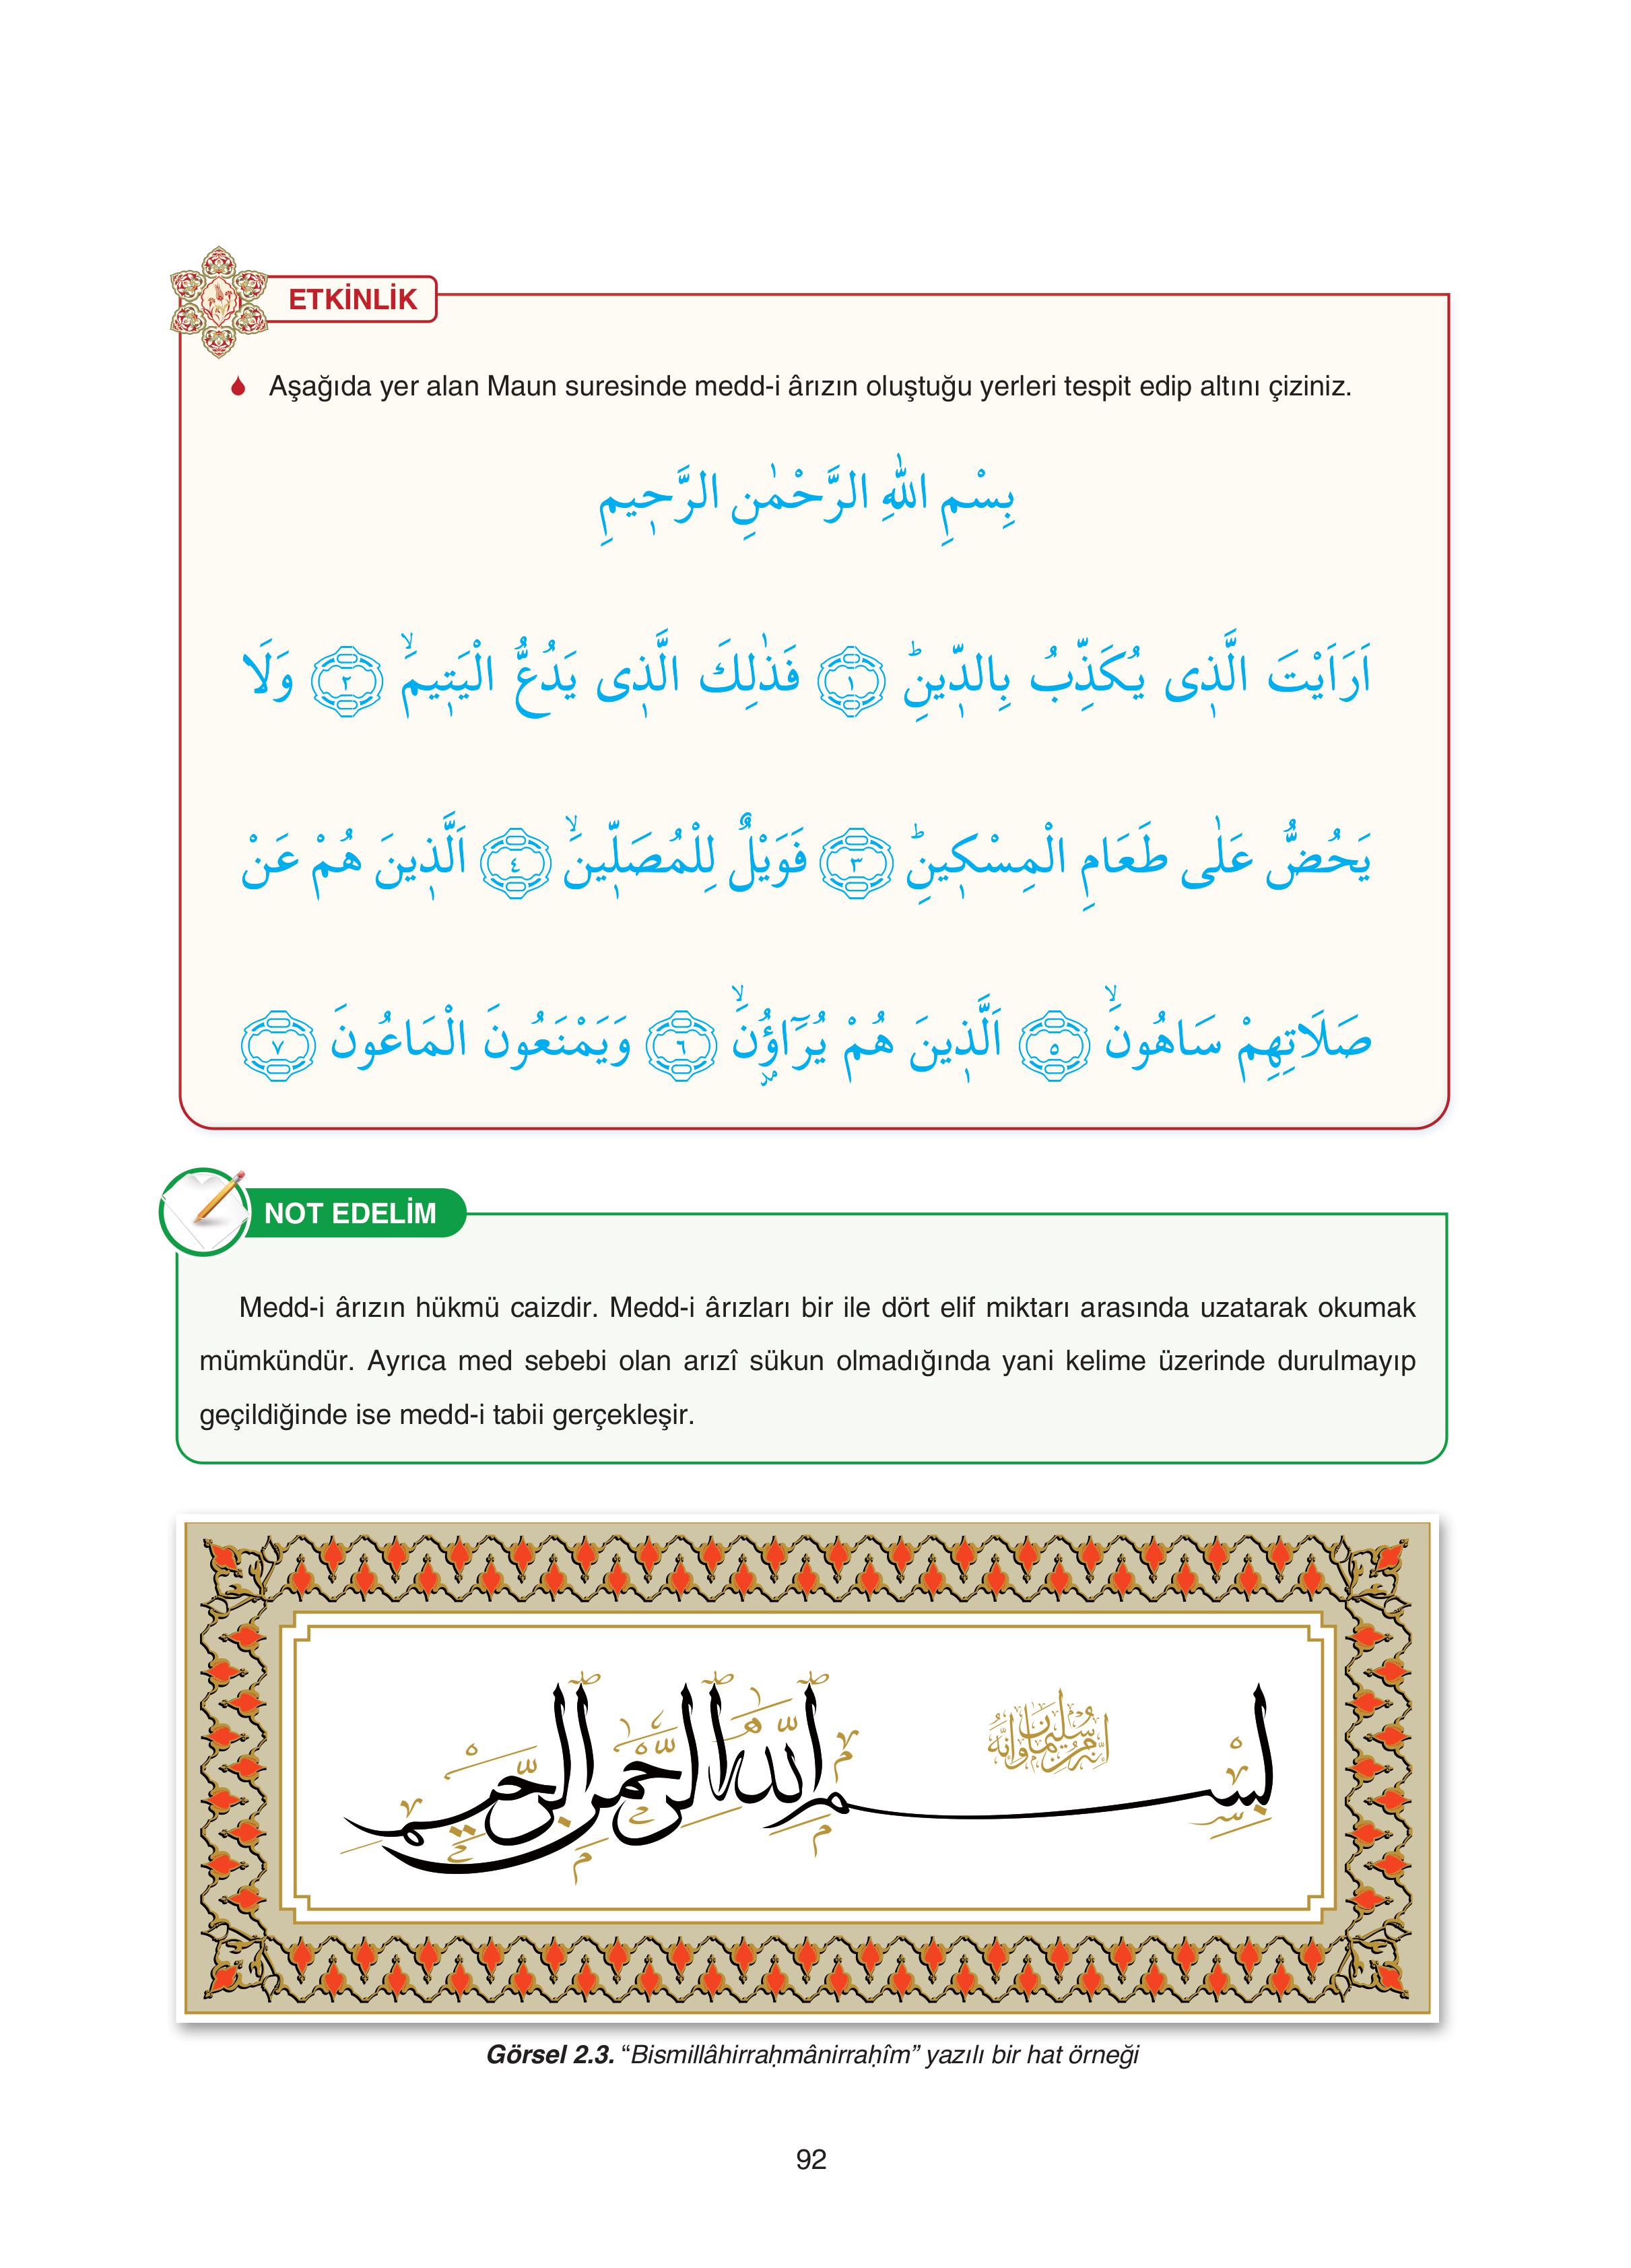 ETKİNLİK
Aşağıda yer alan Maun suresinde medd-i ârızın oluştuğu yerleri tespit edip altını çiziniz.
بِسْمِ اللّٰهِ الرَّحْمٰنِ الرَّح۪يمِ
اَرَاَيْتَ الَّذ۪ى يُكَذِّبُ بِالدّ۪ينِۜ ﴿١﴾ فَذٰلِكَ الَّذ۪ى يَدُعُّ الْيَت۪يمَۙ ﴿٢﴾ وَلَا
يَحُضُّ عَلٰى طَعَامِ الْمِسْك۪ينِۜ ﴿٣﴾ فَوَيْلٌ لِلْمُصَلّ۪ينَۙ ﴿٤﴾ اَلَّذ۪ينَ هُمْ عَنْ
صَلَاتِهِمْ سَاهُونَۙ ﴿٥﴾ اَلَّذ۪ينَ هُمْ يُرَٓاؤُ۫نَۙ ﴿٦﴾ وَيَمْنَعُونَ الْمَاعُونَ ﴿٧﴾
NOT EDELİM
Medd-i ârızın hükmü caizdir. Medd-i ârızları bir ile dört elif miktarı arasında uzatarak okumak
mümkündür. Ayrıca med sebebi olan arızî sükun olmadığında yani kelime üzerinde durulmayıp
geçildiğinde ise medd-i tabii gerçekleşir.
انه من سليمان وانه
بسم الله الرحمن الرحيم
Görsel 2.3. “Bismillâhirraḥmânirraḥîm” yazılı bir hat örneği
92